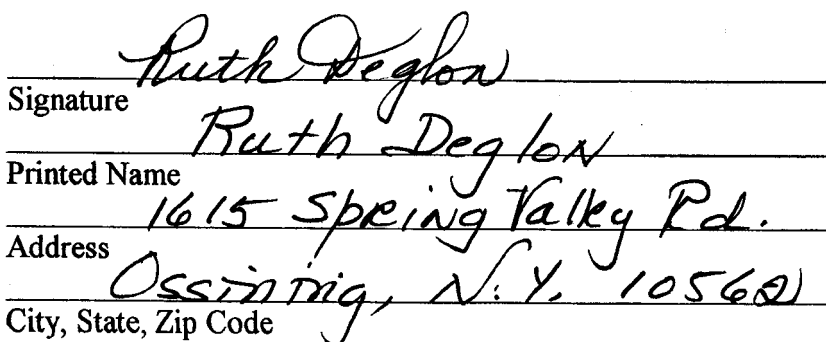 Ruth Deglon
Signature
Ruth Deglon
Printed Name
1615 Spring Valley Rd.
Address
Ossining, N.Y. 10562
City, State, Zip Code